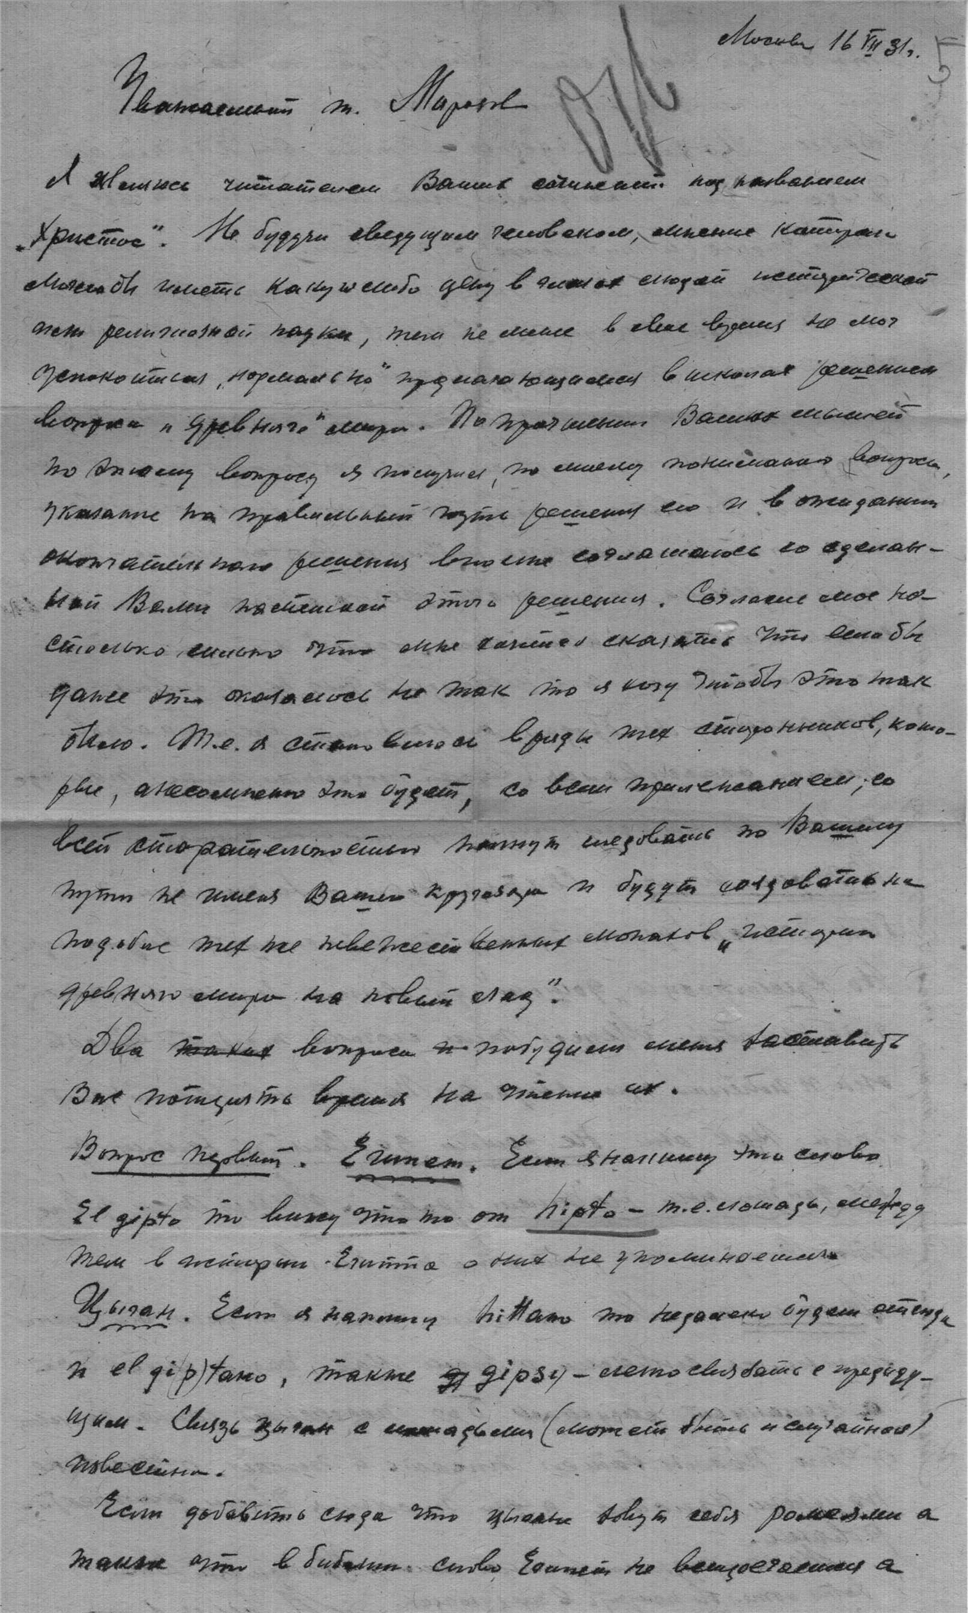 Москва 16 VII 31г.
Уважаемый т. Марозов
Я являюсь читателем Ваших сочинений под названием
„Христос". Не будучи сведущим человеком, мнение которых
могло бы иметь какую либо цену в глазах людей исторической
или религиозной науки, тем не менее в свое время не мог
успокоиться „нормально" предлагающимися в школах решением
вопроса „древняго" мира. По прочтении Ваших мыслей
по этому вопросу я получил, по моему пониманию вопроса,
указание на правильный путь решения его и в ожидании
окончательного решения вполне соглашаюсь со сделан-
ной Вами постановкой этого решения. Согласие мое на-
столько сильно что мне хочется сказать что если бы
даже это оказалось не так то я хочу чтобы это так
было. Т.е. я становлюсь в ряды тех сторонников, кото-
рые, а несомненно это будет, со всем прилежанием, со
всей старательностью начнут следовать по Вашему
пути не имея Вашего кругозора и будут создавать на
подобие тех же невежественных монахов „истории
древняго мира на новый лад".
Два вопроса побудили меня заставить
Вас потерять время на чтение их.
Вопрос первый. Египет. Если я напишу это слово
El gipto то вижу что то от hipto – т.е. лошадь, между
тем в истории Египта о них не упоминается.
Цыган. Если я напишу hittano то недалеко будет отсюда
и el gi(p)tano, также gipsy – легко связать с предыду-
щим. Связь цыган с лошадьми (может быть и случайная)
известна.
Если добавить сюда что цыгане зовут себя ромеями а
также что в библии слово Египет не встречается а